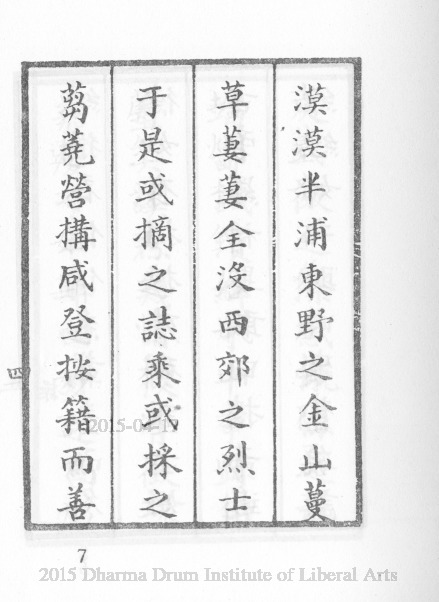 漠漠半浦東野之金山蔓
草萋萋全沒西郊之烈士
于是或摘之誌乘或採之
蒭蕘營搆咸登按籍而善
四
7
2015-04-17
2015 Dharma Drum Institute of Liberal Arts